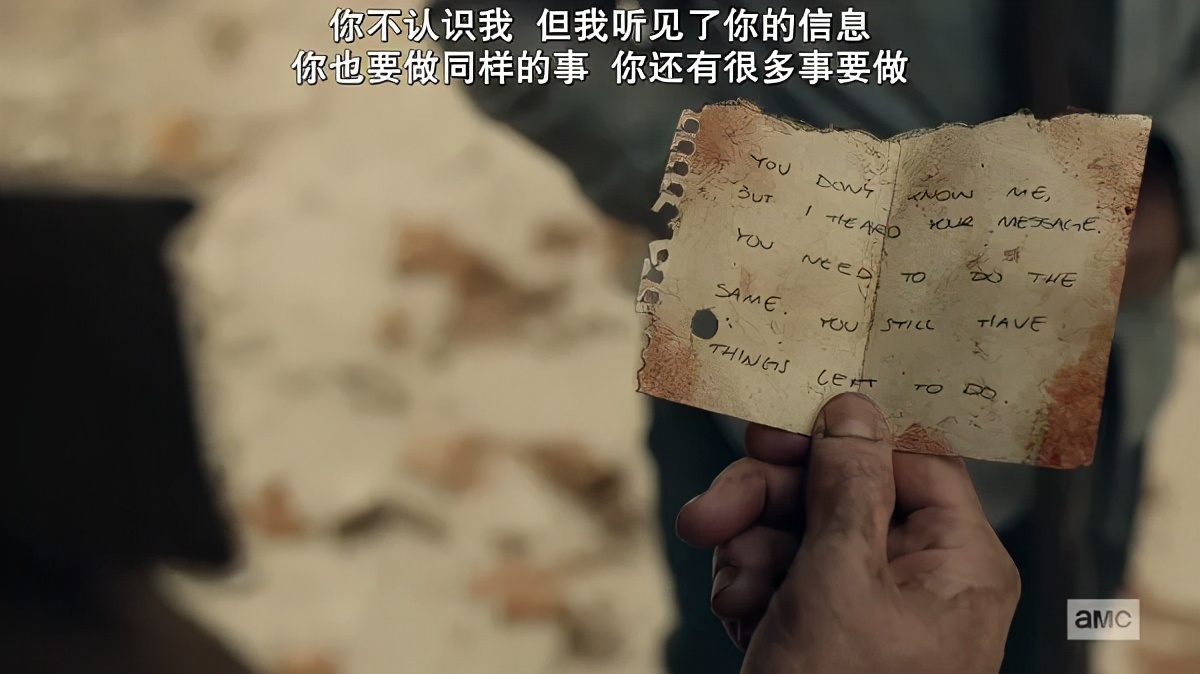 你不认识我 但我听见了你的信息
你也要做同样的事 你还有很多事要做
YOU DON'T KNOW ME,
BUT I HEARD YOUR MESSAGE.
YOU NEED TO DO THE
SAME. YOU STILL HAVE
THINGS LEFT TO DO.
amc